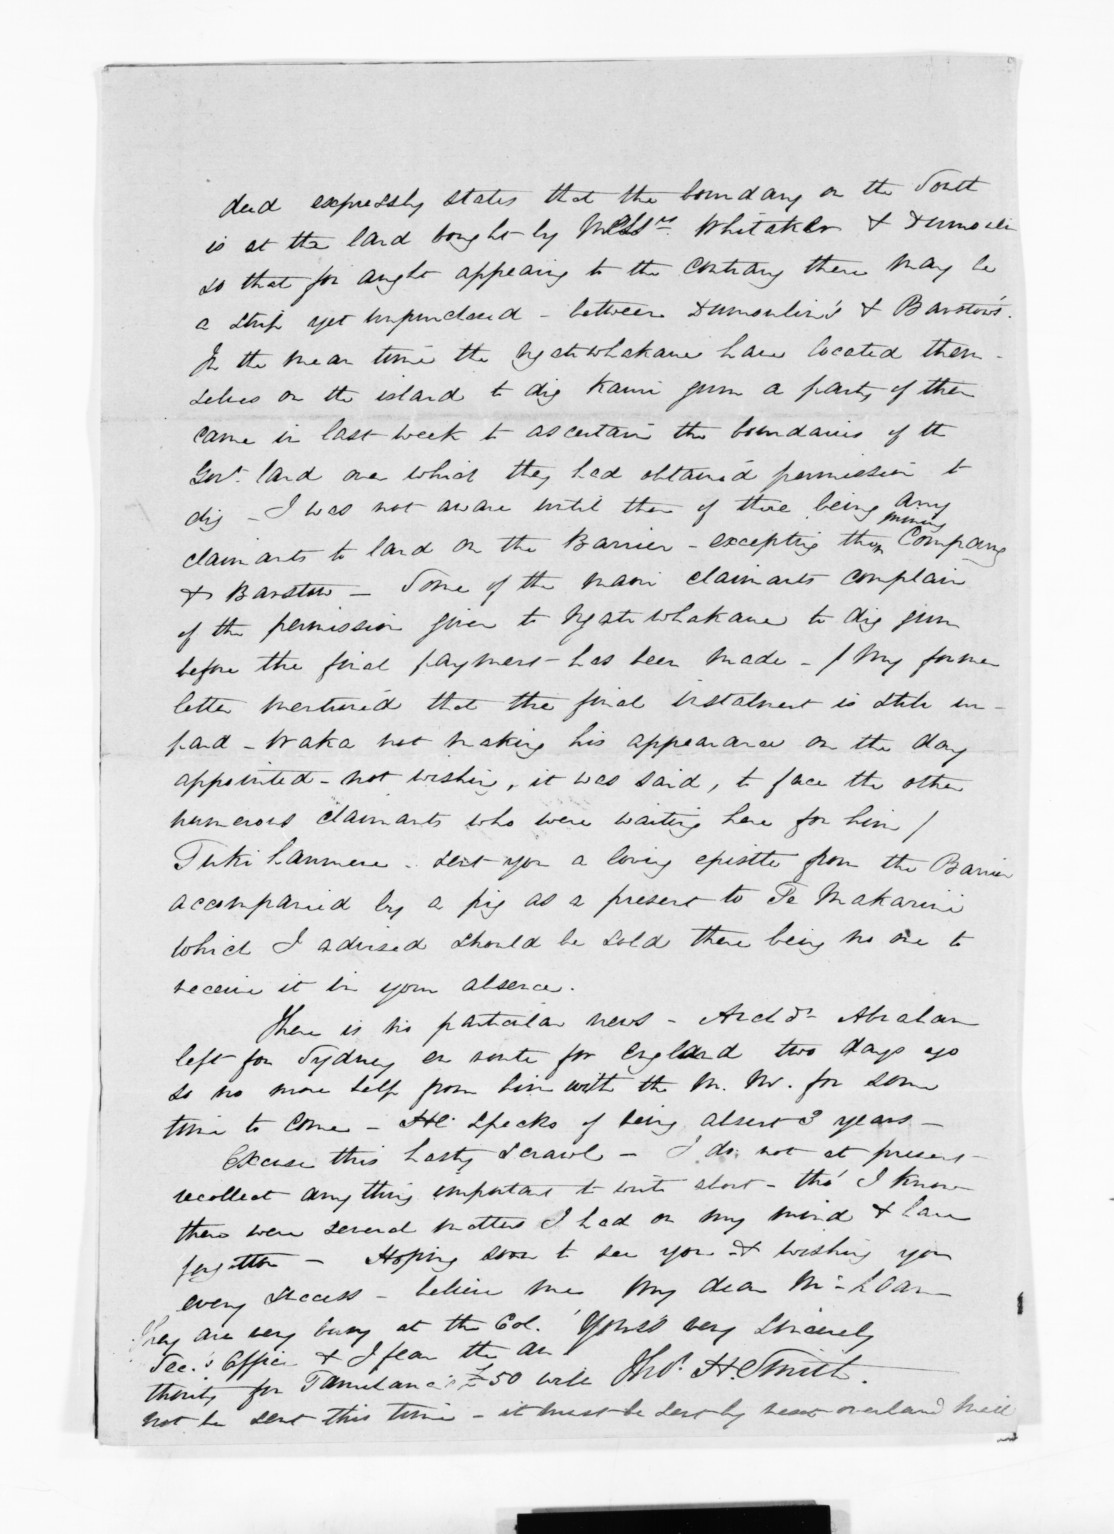 deed expressly states that the boundary on the South
is at the land bought by Messrs. Whitaker & Dumoulin
so that for aught appearing to the contrary there may be
a strip yet unpurchased - between Dumoulin's & Barstow's.
In the mean time the Ngatiwhakaue have located them-
selves on the island to dig Kauri gum a party of them
came in last week to ascertain the boundaries of the
Govt. land over which they had obtained permission to
dig - I was not aware until then of there being any
claimants to land on the Barrier - excepting the mining Company
& Barstow - Some of the maori claimants complain
of the permission given to Ngatiwhakaue to dig gum
before the final payment has been made - / My former
letter mentioned that the final instalment is still un-
paid - Waka not making his appearance on the day
appointed - not wishing, it was said, to face the other
numerous claimants who were waiting here for him /
sent you a loving epistle from the Barrier
accompanied by a pig as a present to Te Makarini
which I advised should be sold there being no one to
receive it in your absence.
There is no particular news - Archdn. Abraham
left for Sydney en route for England two days ago
so no more help from him with the M. M. for some
time to come - He speaks of being absent 3 years -
Excuse this hasty scrawl - I do not at present
recollect any thing important to write about - tho' I know
there were several matters I had on my mind & have
forgotten - Hoping soon to see you & wishing you
every success - believe me My dear McLean
Yours very sincerely
Thos. H. Smith.
They are very busy at the Col.
Sec.'s Office & I fear the au
thority for £50 will
not be sent this time - it must be sent by next overland mail